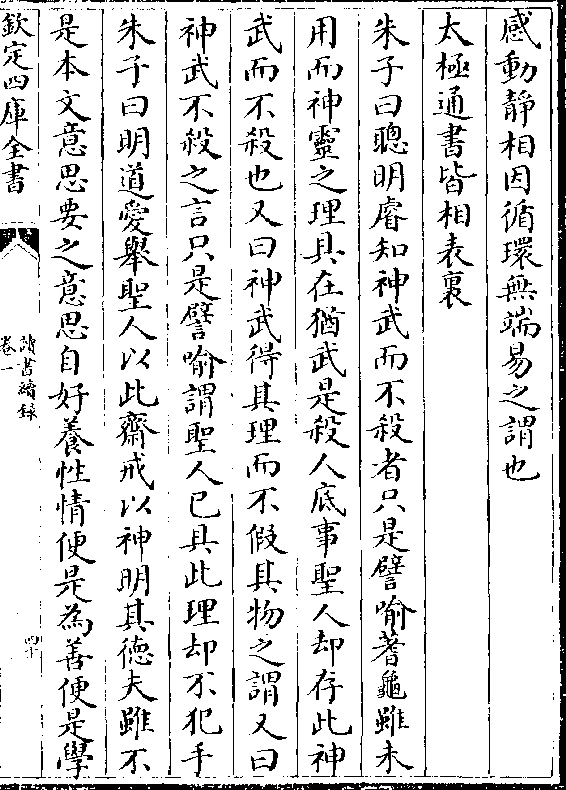 感動靜相因循環無端易之謂也
太極通書皆相表裏
朱子曰聰明睿知神武而不殺者只是譬喻蓍龜雖未
用而神靈之理具在猶武是殺人底事聖人却存此神
武而不殺也又曰神武得其理而不假其物之謂又曰
神武不殺之言只是譬喻謂聖人已具此理却不犯手
朱子曰明道愛舉聖人以此齋戒以神明其德夫雖不
是本文意思要之意思自好養性情便是為善便是學
欽定四庫全書
讀書續錄
卷一
四十